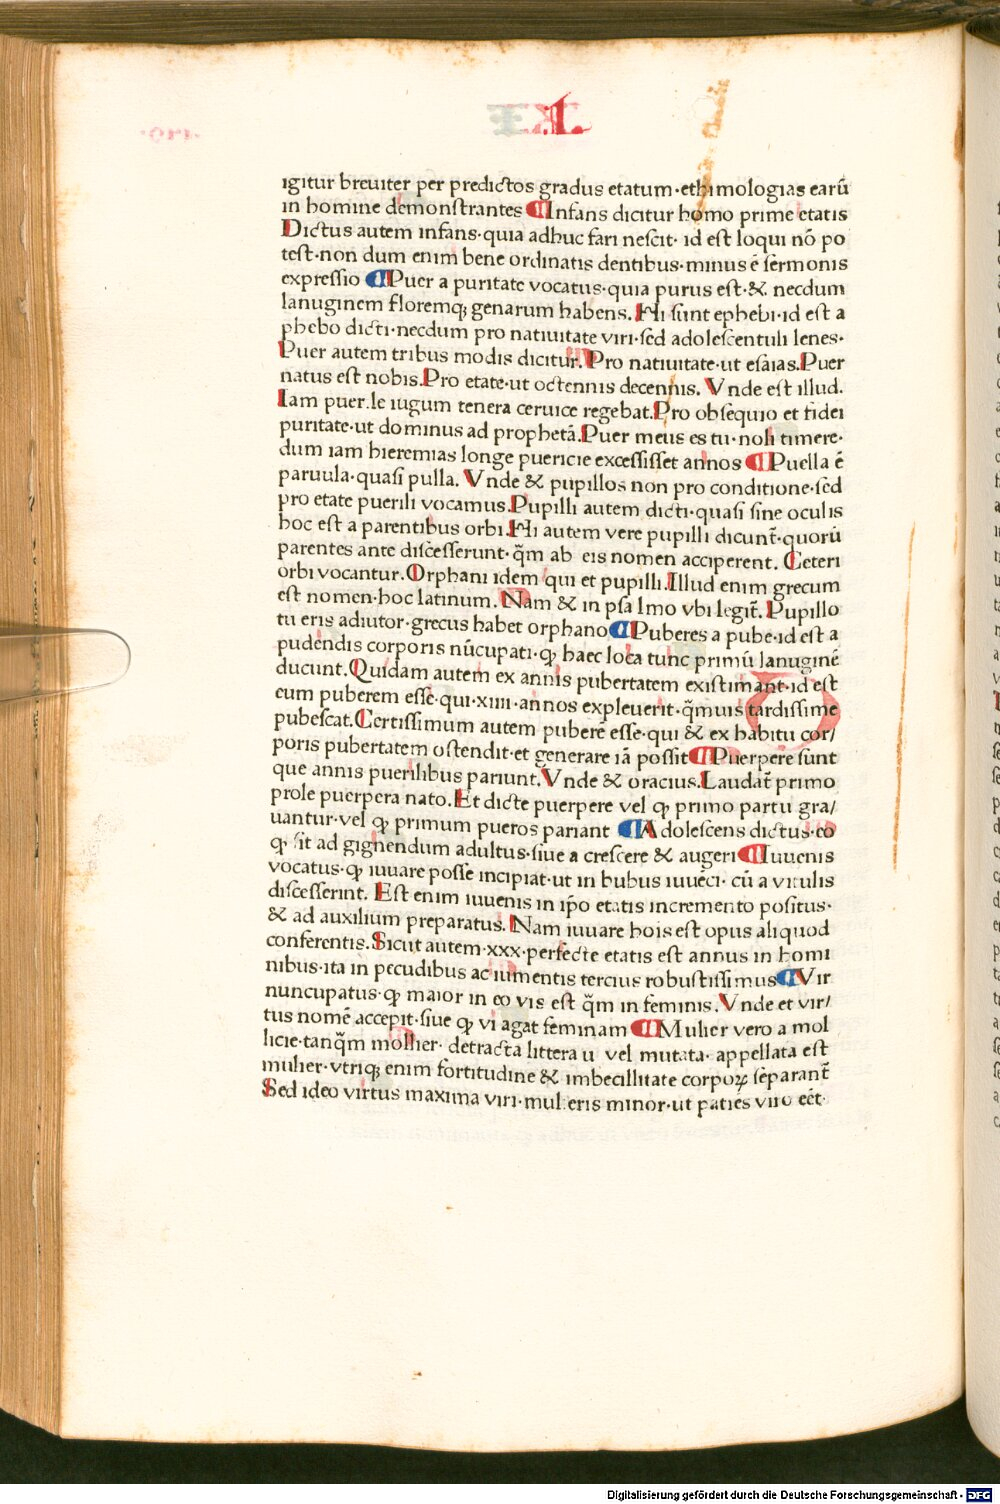 .L
igitur breuiter per predictos gradus etatum·ethimologias earū
in homine demonstrantes ¶Infans dicitur homo prime etatis
Dictus autem infans·quia adhuc fari nescit· id est loqui nō po
test·non dum enim bene ordinatis dentibus·minus ē sermonis
expressio ¶Puer a puritate vocatus·quia purus est·& necdum
lanuginem floremqꝫ genarum habens. Hi sunt ephebi·id est a
phebo dicti·necdum pro natiuitate viri·sed adolescentuli lenes·
Puer autem tribus modis dicitur. Pro natiuitate·ut esaias.Puer
natus est nobis.Pro etate·ut octennis decennis. Vnde est illud.
Iam puer.le iugum tenera ceruice regebat.Pro obsequio et fidei
puritate·ut dominus ad prophetā.Puer meus es tu·noli timere·
dum iam hieremias longe puericie excessisset annos ¶Puella ē
paruula·quasi pulla. Vnde & pupillos non pro conditione·sed
pro etate puerili vocamus.Pupilli autem dicti·quasi sine oculis
hoc est a parentibus orbi.Hi autem vere pupilli dicunt̄·quorū
parentes ante discesserunt·q̄m ab eis nomen acciperent. Ceteri
orbi vocantur.Orphani idem qui et pupilli.Illud enim grecum
est nomen·hoc latinum. Nam & in psa lmo vbi legit̄. Pupillo
tu eris adiutor·grecus habet orphano ¶Puberes a pube·id est a
pudendis corporis nūcupati·ꝙ haec loca tunc primū lanuginē
ducunt.Quidam autem ex annis pubertatem existimant·id est
eum puberem esse·qui·xiiii·annos expleuerit·q̄muis tardissime
pubescat.Certissimum autem puberē esse·qui & ex habitu cor/
poris pubertatem ostendit·et generare iā possit ¶Puerpere sunt
que annis puerilibus pariunt.Vnde & oracius.Laudat̄ primo
prole puerpera nato.Et dicte puerpere vel ꝙ primo partu gra/
uantur·vel ꝙ primum pueros pariant ¶Adolescens dictus·eo
ꝙ sit ad gignendum adultus·siue a crescere & augeri ¶Iuuenis
vocatus·ꝙ iuuare posse incipiat·ut in bubus iuuēci· cū a vitulis
discesserint. Est enim iuuenis in ip̄o etatis incremento positus·
& ad auxilium preparatus. Nam iuuare hois est opus aliquod
conferentis.Sicut autem·xxx·perfecte etatis est annus in homi
nibus·ita in pecudibus ac iumentis tercius robustissimus ¶Vir
nuncupatus·ꝙ maior in eo vis est q̄m in feminis.Vnde et vir/
tus nomē accepit·siue ꝙ vi agat feminam ¶Mulier vero a mol
licie·tanq̄m mollier· detracta littera u vel mutata· appellata est
mulier·vtriqꝫ enim fortitudine & imbecillitate corpoꝝ separant̄
Sed ideo virtus maxima viri·mulieris minor·ut paties viro eēt·
Digitalisierung gefördert durch die Deutsche Forschungsgemeinschaft - DFG